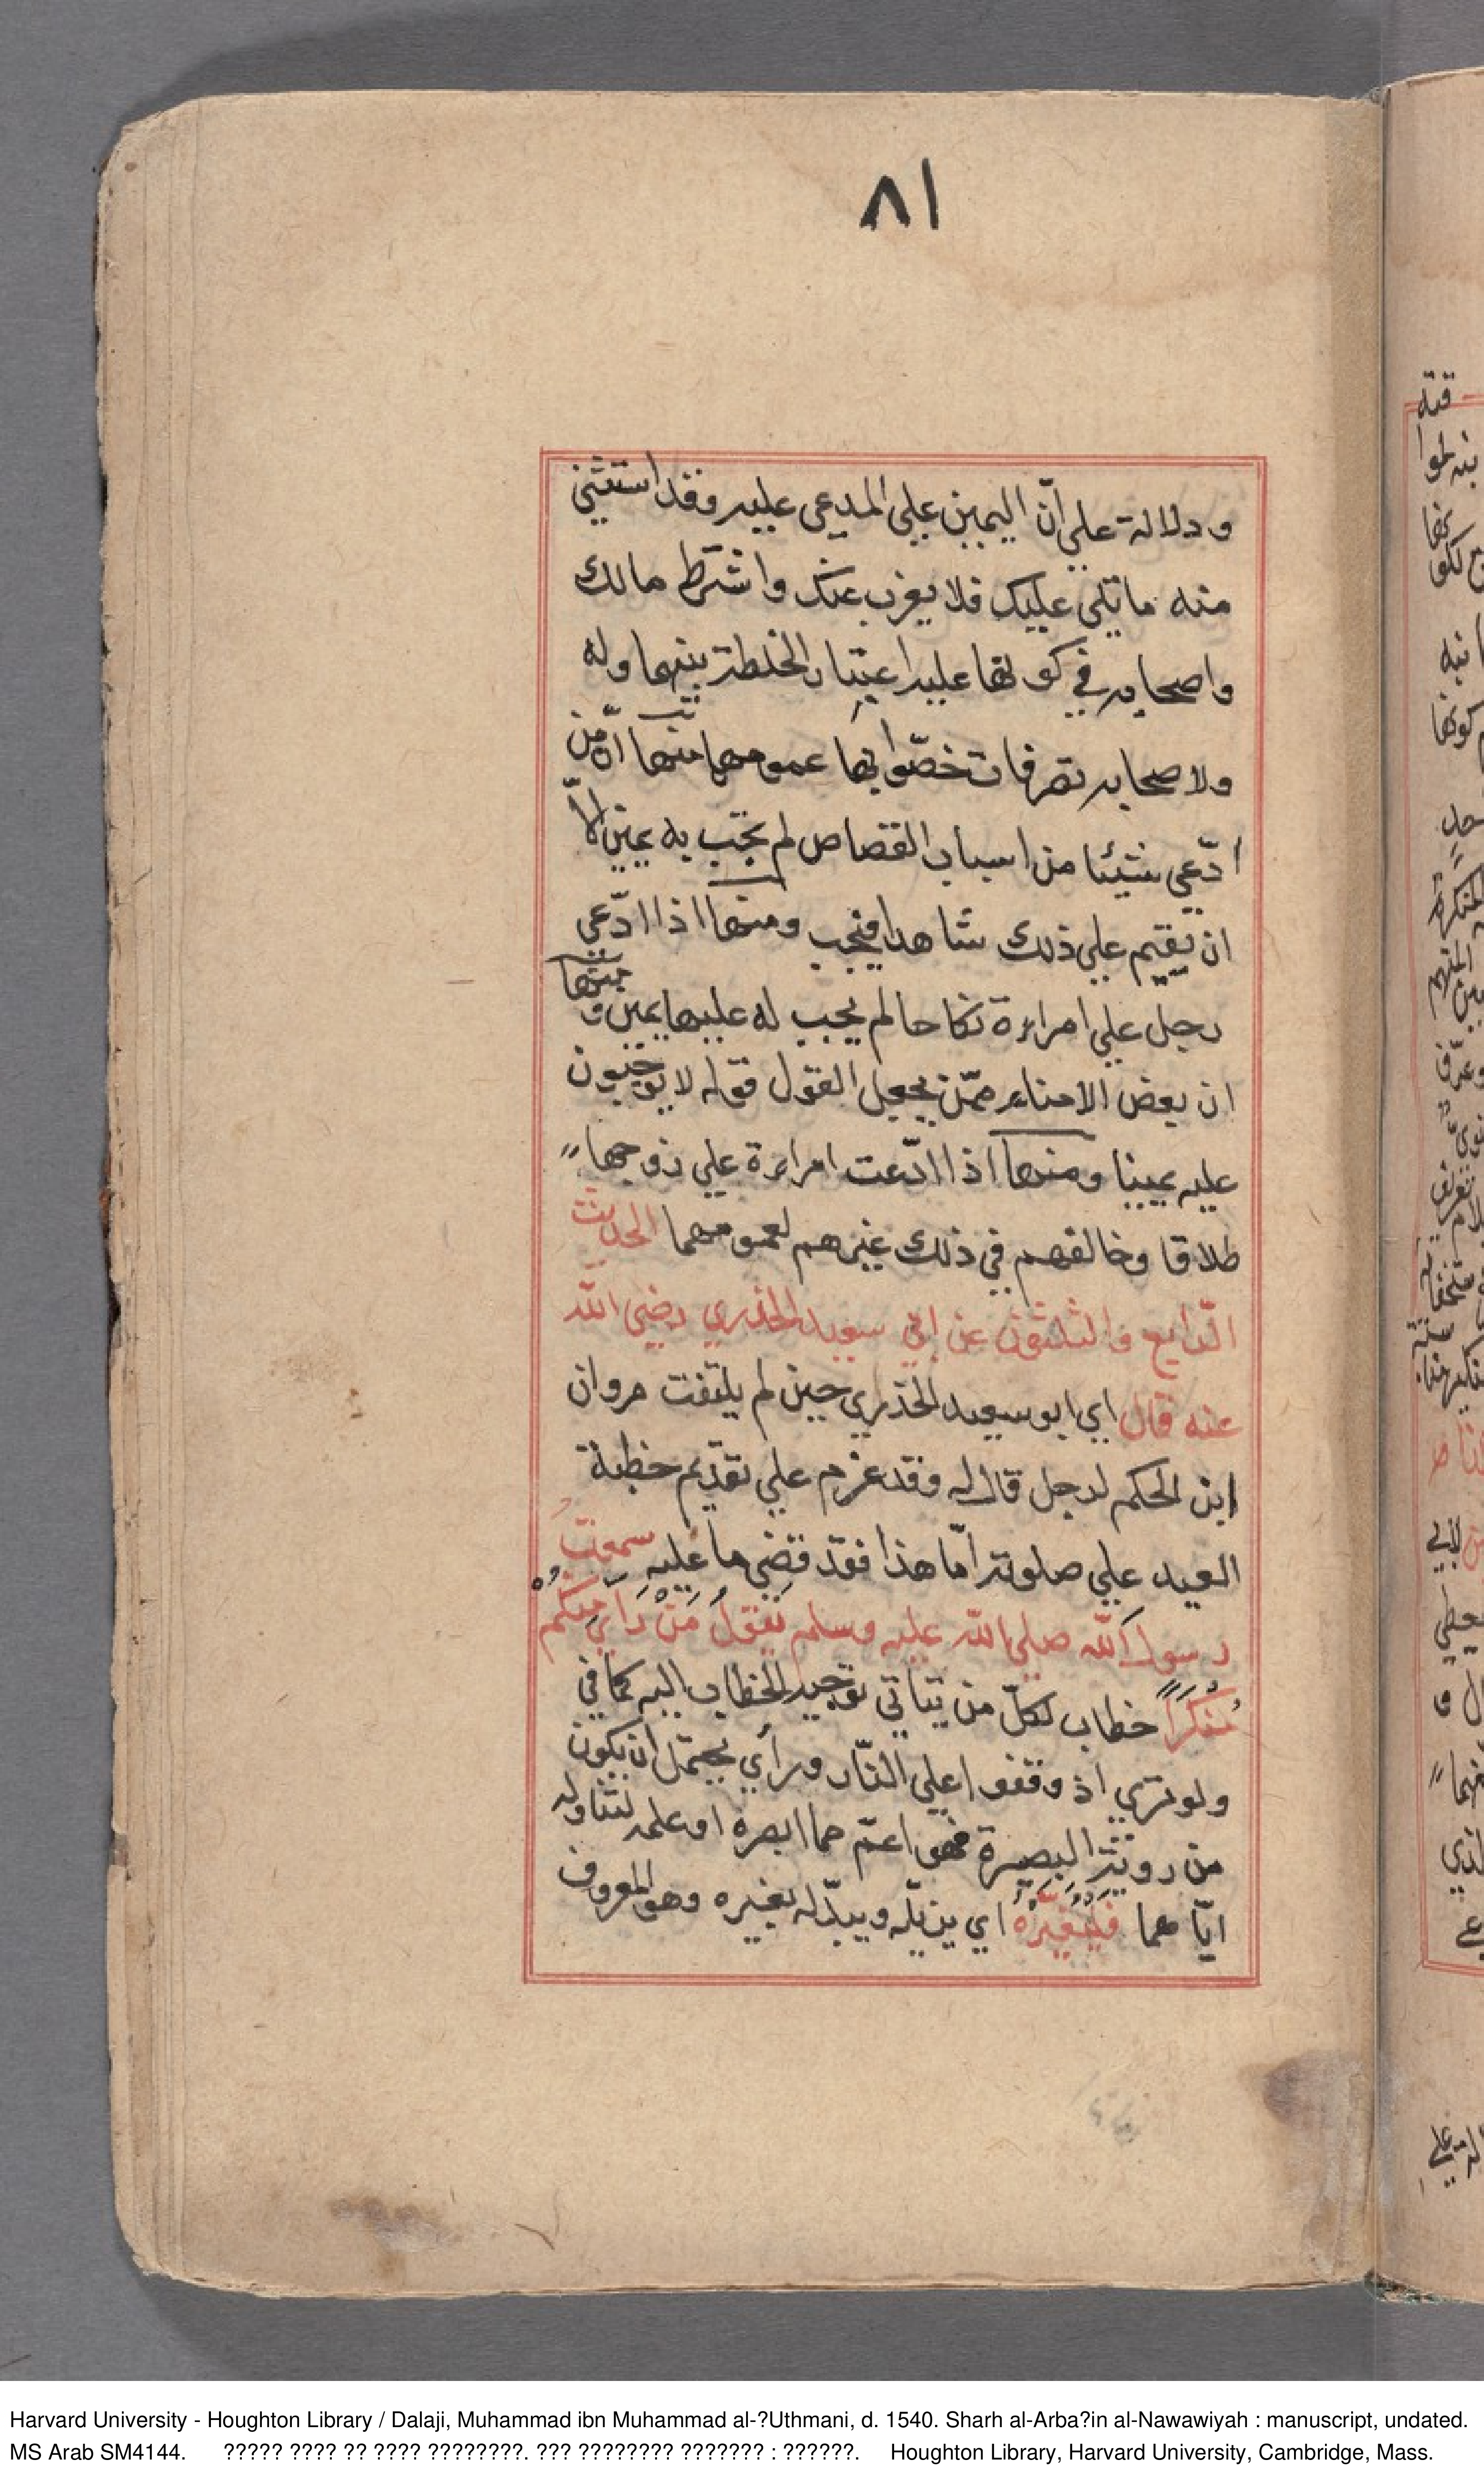 ٨١
ودلالة علي انّ اليمين علي المدعي عليه وقد استثني
منه ما تلي عليك فلا يغرب عنك واشترط مالك
واصحابه في كونها عليه اعتبار الخلطة بينهما وله
ولاصحابه تصرفات خصّوا بها عمومهما منها انّ من
ادّعي شيئا من اسباب القصاص لم تجب به يمين الاّ
ان يقيم علي ذلك شاهدا فيجب ومنها اذا ادّعي
رجل علي امراءة نكاحا لم يجب له عليها يمين ومنها
ان بعض الامناء ممّن يجعل القول قوله لا يوجبون
عليه يمينا ومنها اذا ادّعت امراءة علي زوجها
طلاقا وخالفهم في ذلك غيرهم لعمومهما الحديث
الرّابع والثلثون عن ابي سعيد الخدري رضي الله
عنه قال اي ابو سعيد الخدري حين لم يلتفت مروان
ابن الحكم لرجل قال له وقد عزم علي تقديم خطبة
العيد علي صلوته امّا هذا فقد قضي ما عليه سمعت
رسول الله صلي الله عليه وسلم يقول مَنْ رَاَي مِنكُم
مُنكَرًا خطاب لكلّ من يتاتي توجيه الخطاب اليه كما في
ولو تري اذ وقفوا علي النّار ورأي يحتمل ان يكون
من روية البصيرة فهو اعمّ مما ابصره او علمه لتناوله
ايّاهما فَلْيُغَيِّرْهُ اي يزيله ويبدّله بغيره وهو المعروف
Harvard University - Houghton Library / Dalaji, Muhammad ibn Muhammad al-?Uthmani, d. 1540. Sharh al-Arba?in al-Nawawiyah : manuscript, undated.
MS Arab SM4144. ????? ???? ?? ???? ????????. ??? ???????? ??????? : ??????. Houghton Library, Harvard University, Cambridge, Mass.